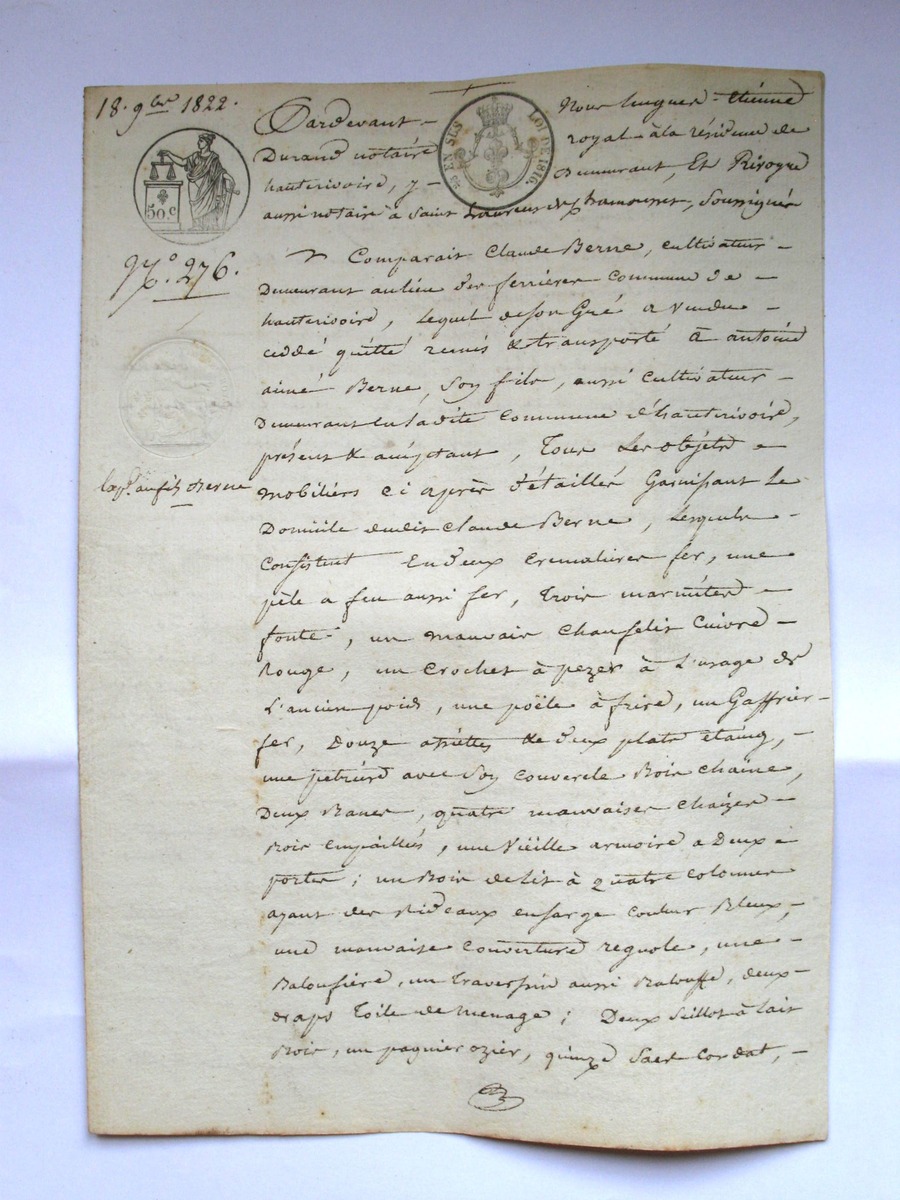 18. 9bre 1822.
50.c
EN SUS
LOI DE 1816.
No. 276.
Expn. au fils Berne
Pardevant Nous hugues Etienne
Durand notaire royal à la résidence de
hauterivoire, y demeurant, Et Rivoyre
aussi notaire à Saint Laurent de chamousset, soussignés
Comparait Claude Berne, cultivateur
Demeurant au lieu des ferrieres commune de
hauterivoire, lequel de son Gré a vendu
ceddé quitté remis & transporté à antoine
aimé Berne, son fils, aussi cultivateur
Demeurant en la dite commune d'hauterivoire,
présent & acceptant, Tous les objets
mobiliers ci après détaillés Garnissant le
Domicile dudit Claude Berne, lesquels
Consistent En deux cremalieres fer, une
pèle a feu aussi fer, trois marmites
fonte, un mauvais chaufelit Cuivre
Rouge, un crochet à pezer à l'usage de
l'ancien poids, une poële à frire, un Gaffrier
fer, Douze assiettes & deux plats étaing,
une petrière avec son couvercle Bois chaine,
Deux Bancs, quatre mauvaises chaizes
Bois empaillés, une Vieille armoire a Deux
portes; un Bois de lit à quatre colonnes
ayant des Rideaux en sarge couleur Bleux,
une mauvaise couverture reguole, une
Baloufière, un traversin aussi Balouffe, deux
draps toile de menage; Deux seillots à lait
Bois, un pagnier ozier, quinze sacs cordat,